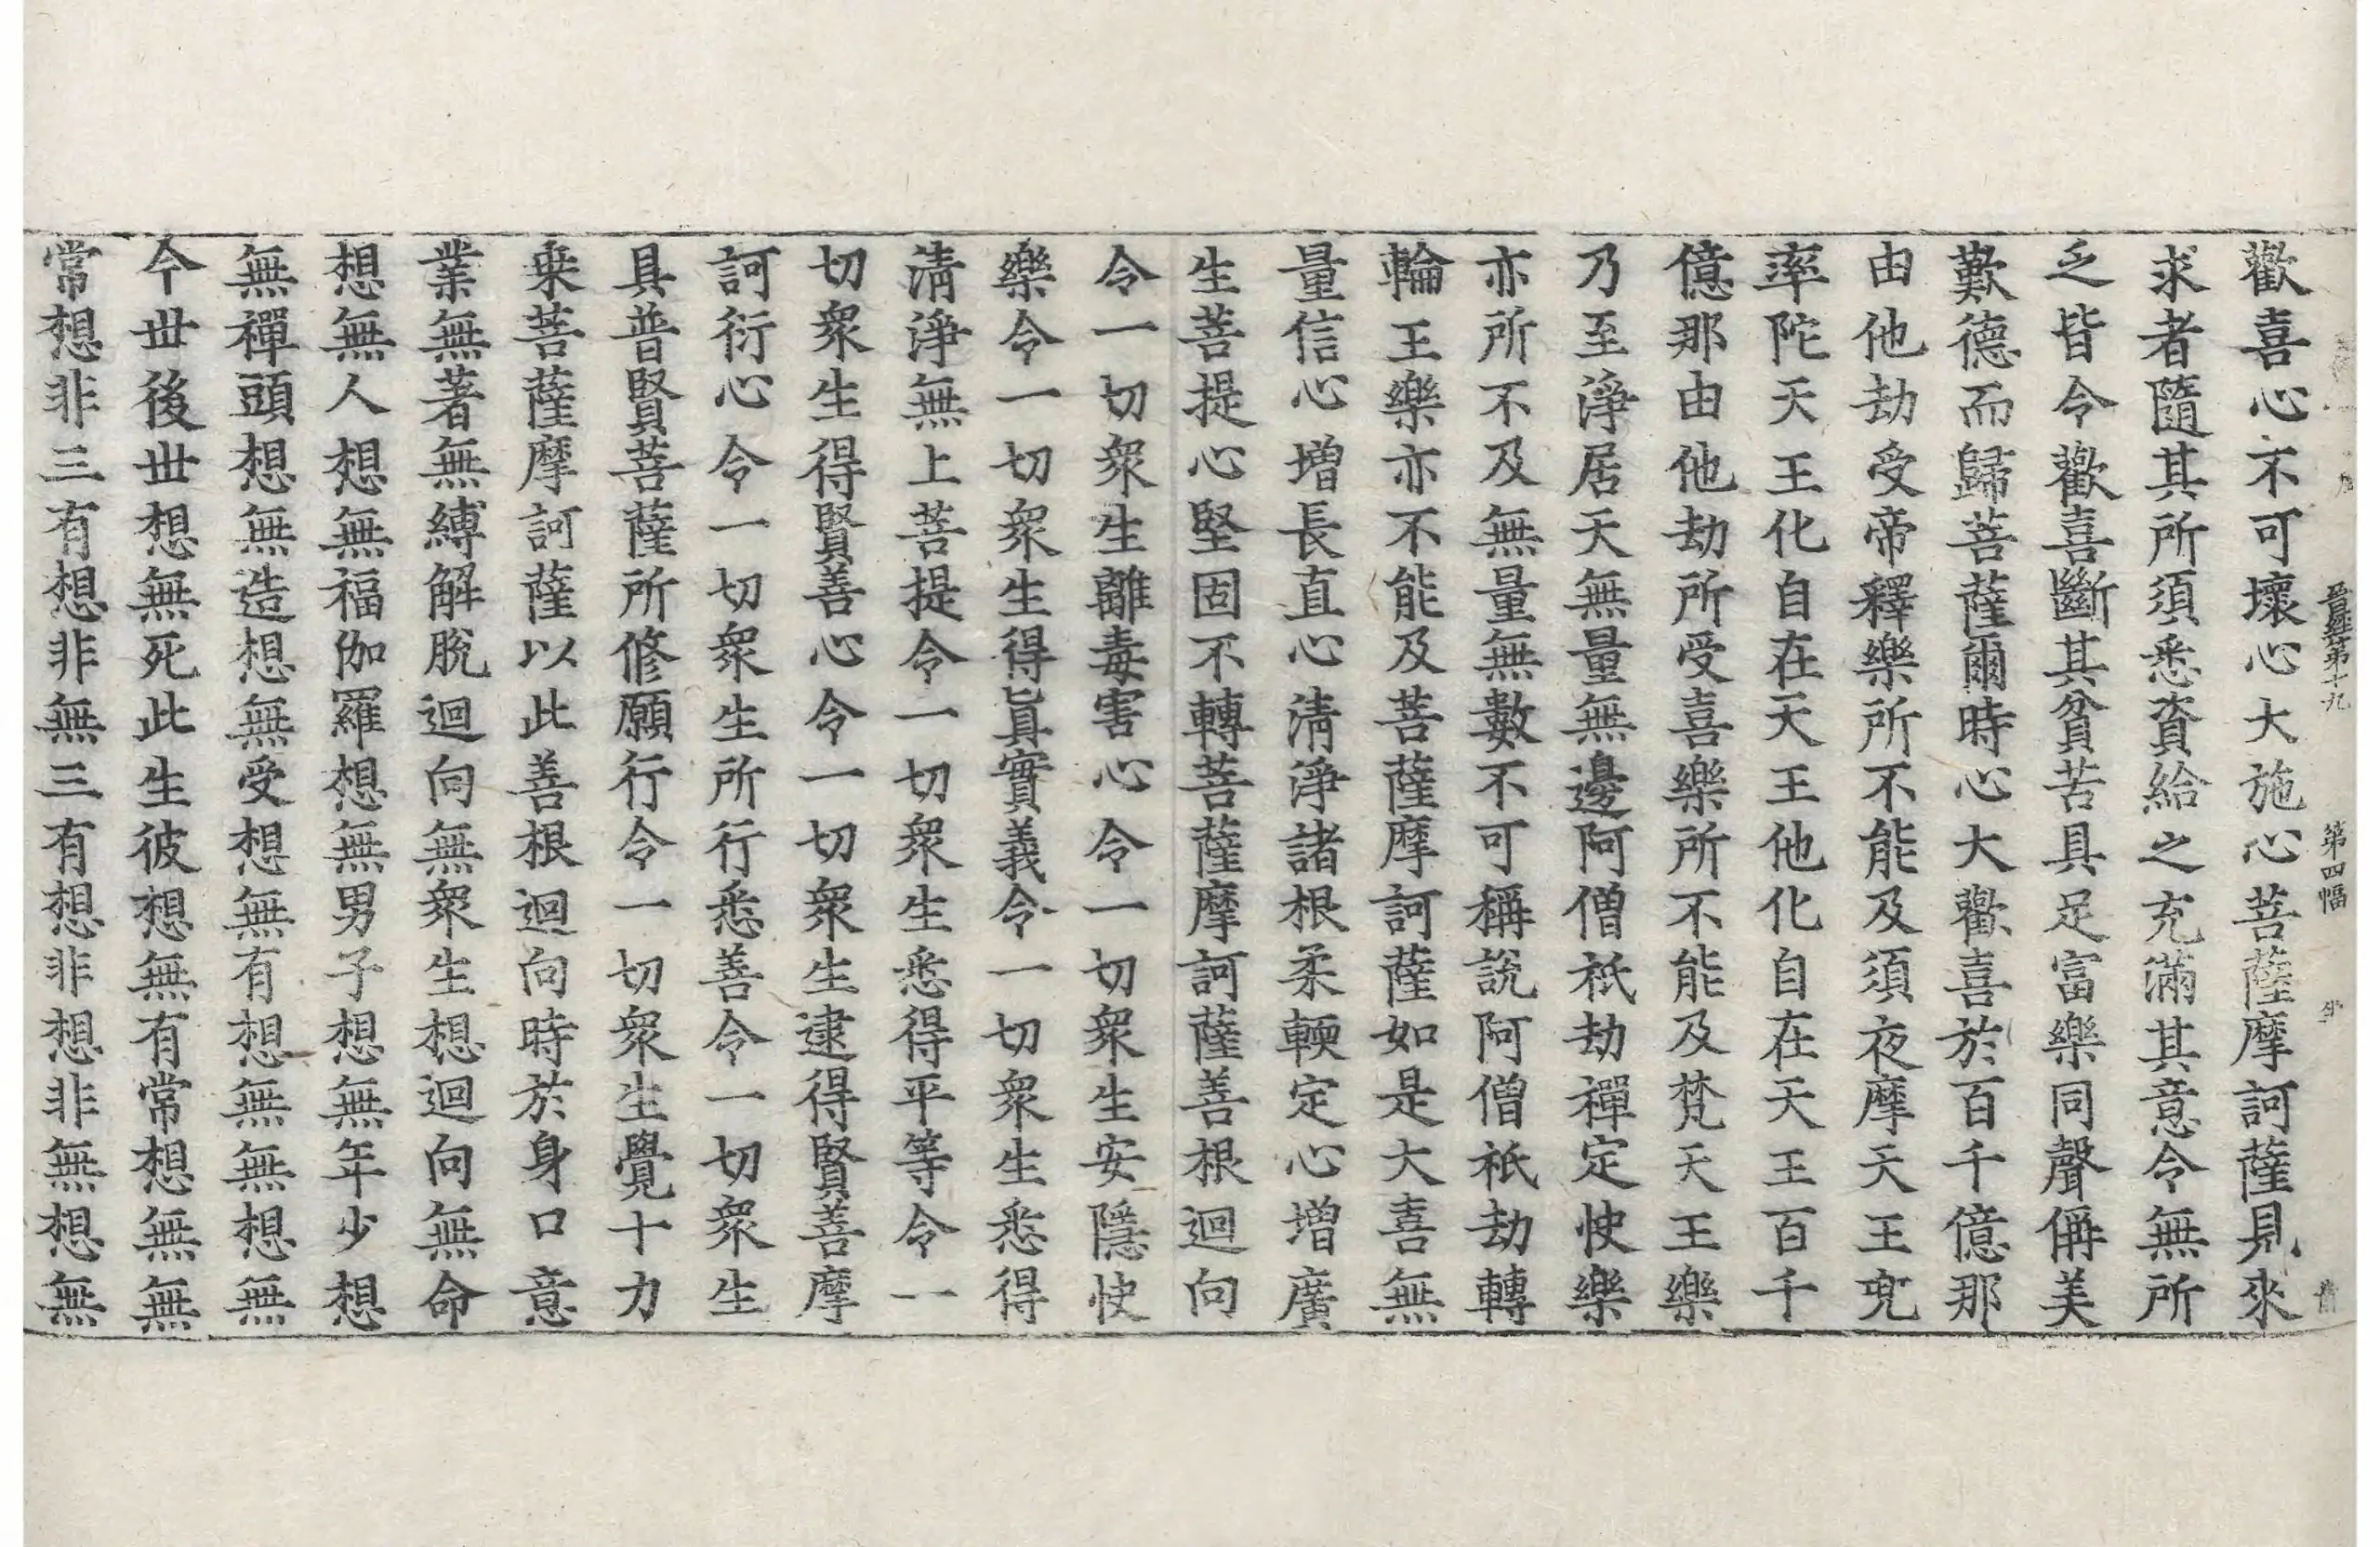 晉經第十九 第四幅
歡喜心不可壞心大施心菩薩摩訶薩見來
求者隨其所須悉資給之充滿其意令無所
乏皆令歡喜斷其貧苦具足富樂同聲偁美
歎德而歸菩薩爾時心大歡喜於百千億那
由他劫受帝釋樂所不能及須夜摩天王兜
率陀天王化自在天王他化自在天王百千
億那由他劫所受喜樂所不能及梵天王樂
乃至淨居天無量無邊阿僧祇劫禪定快樂
亦所不及無量無數不可稱說阿僧祇劫轉
輪王樂亦不能及菩薩摩訶薩如是大喜無
量信心增長直心清淨諸根柔輭定心增廣
生菩提心堅固不轉菩薩摩訶薩善根迴向
令一切衆生離毒害心令一切衆生安隱快
樂令一切衆生得眞實義令一切衆生悉得
淸淨無上菩提令一切衆生悉得平等令一
切衆生得賢善心令一切衆生逮得賢善摩
訶衍心令一切衆生所行悉善令一切衆生
具普賢菩薩所修願行令一切衆生覺十力
乗菩薩摩訶薩以此善根迴向時於身口意
業無著無縛解脫迴向無衆生想迴向無命
想無人想無福伽羅想無男子想無年少想
無禪頭想無造想無受想無有想無無想無
今世後世想無死此生彼想無有常想無無
常想非三有想非無三有想非想非無想無